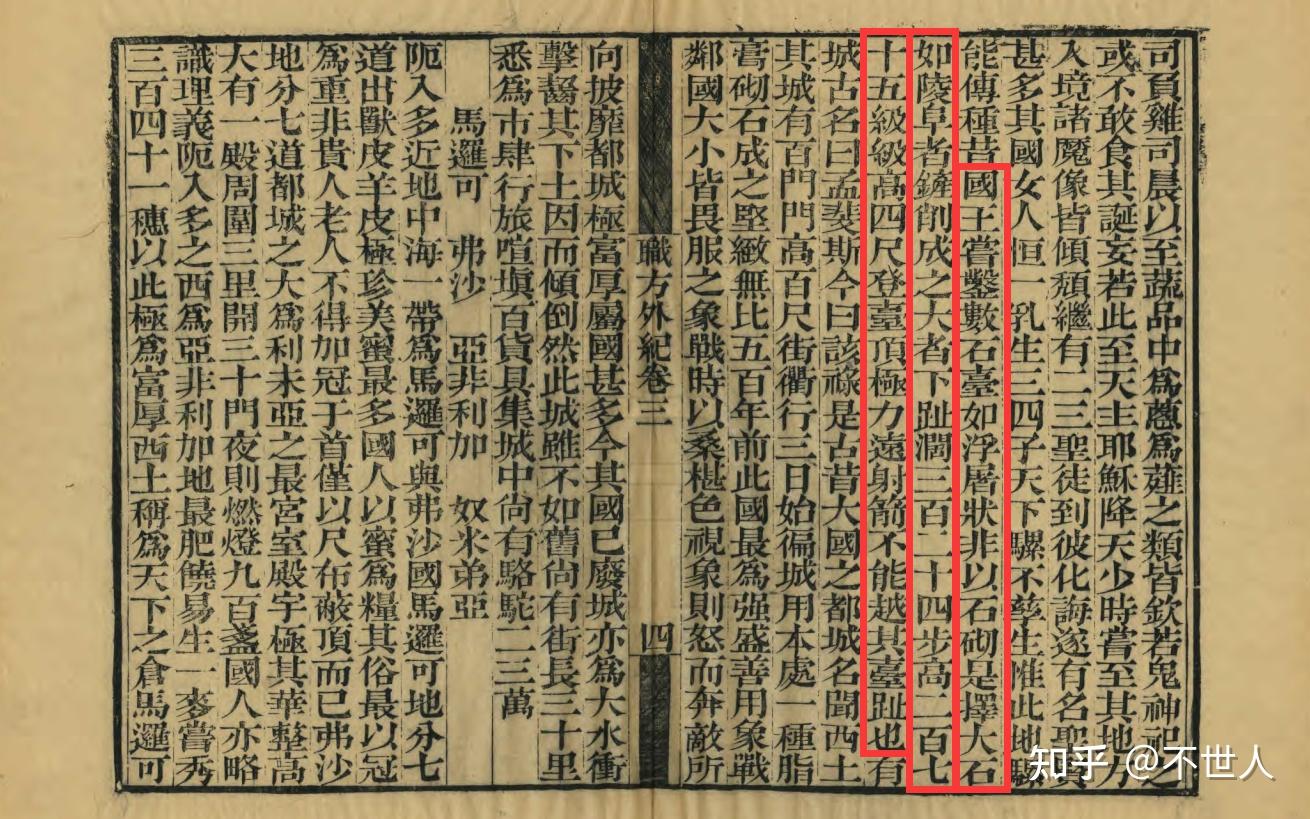 司員雞司晨以至蔬品中爲蔥爲薤之類皆欽若鬼神祀之
或不敢食其誕妄若此至天主耶穌降天少時嘗至其地方
入境諸魔像皆傾頹繼有二三聖徒到彼化誨遂有名聖賢
甚多其國女人恒一乳生三四子天下騾不孳生惟此地騾
能傳種昔國王嘗鑿數石臺如浮屠狀非以石砌是擇大石
如陵阜者鏟削成之大者下趾濶三百二十四步高二百七
十五級級高四尺登臺頂極力遠射箭不能越其臺趾也有
城古名曰孟斐斯今曰該祿是古昔大國之都城名聞西土
其城有百門門高百尺街衢行三日始徧城用本處一種脂
膏砌石成之堅緻無比五百年前此國最爲强盛善用象戰
鄰國大小皆畏服之象戰時以桑椹色視象則怒而奔敵所
職方外紀卷三 四
向披靡都城極富厚屬國甚多今其國已廢城亦爲大水衝
擊齧其下土因而傾倒然此城雖不如舊尙有街長三十里
悉爲市肆行旅喧塡百貨具集城中尙有駱駝二三萬
馬邏可 弗沙 亞非利加 奴米弟亞
阨入多近地中海一帶爲馬邏可與弗沙國馬邏可地分七
道出獸皮羊皮極珍美蜜最多國人以蜜爲糧其俗最以冠
爲重非貴人老人不得加冠于首僅以尺布蔽頂而已弗沙
地分七道都城之大爲利未亞之最宮室殿宇極其華整高
大有一殿周圍三里開三十門夜則燃燈九百盞國人亦略
識理義阨入多之西爲亞非利加地最肥饒易生一麥嘗秀
三百四十一穗以此極爲富厚西土稱爲天下之倉馬邏可
知乎 @不世人